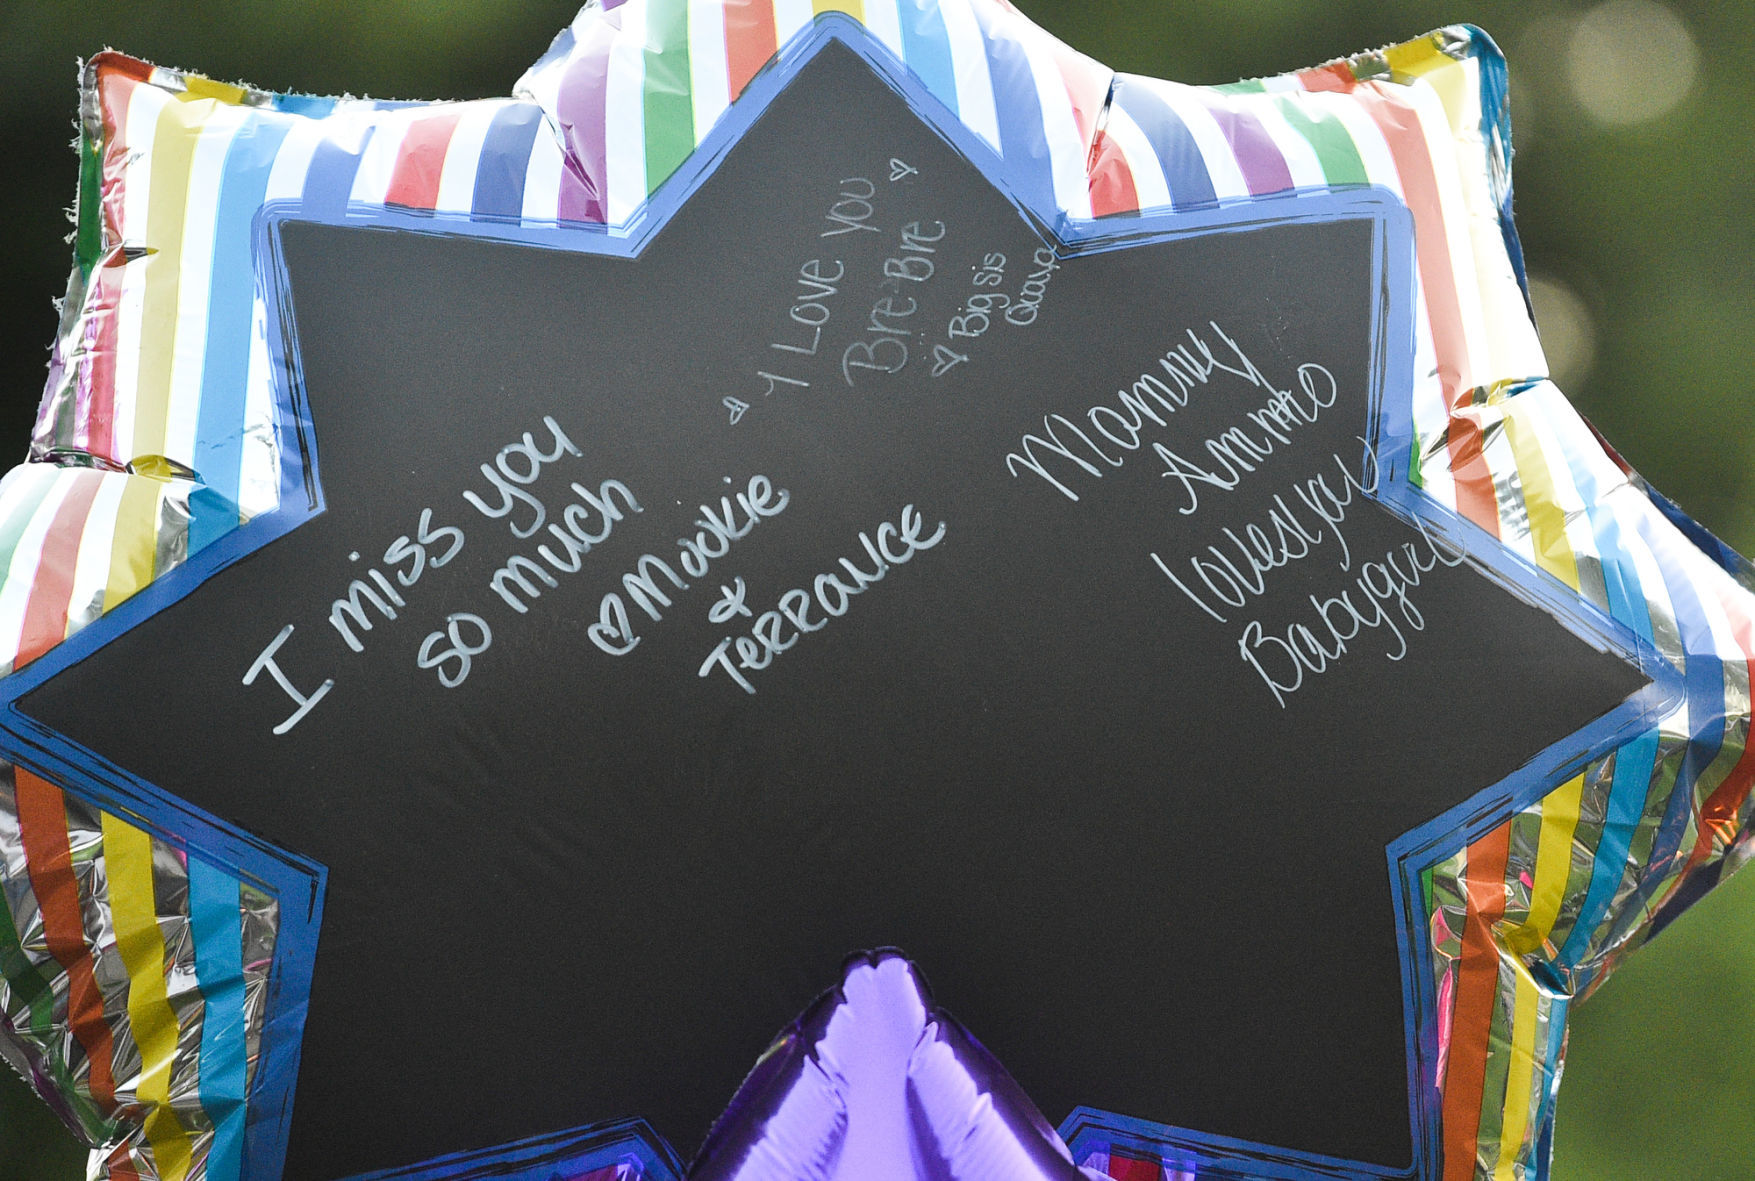 I miss you
so much
♡ Mookie
&
Terrance
♡ I Love you ♡
Bre-Bre
♡ Big sis
Mommy
loves you
Babygirl